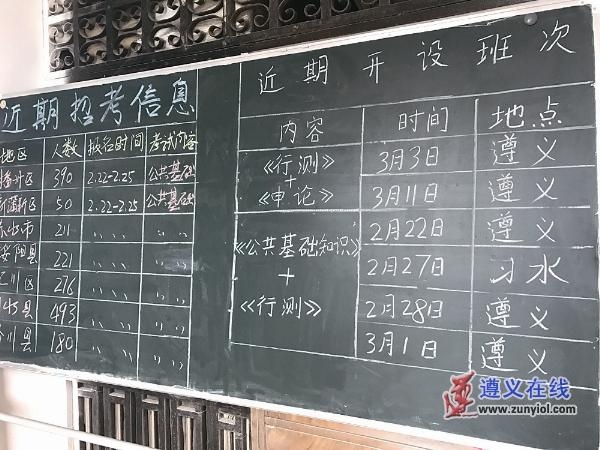 近期招考信息
地区 人数 报名时间 考试内容
播州区 390 2.22-2.25 公共基础
新蒲新区 50 2.22-2.25 公共基础
赤水市 211 〃 〃 〃 〃
绥阳县 221 〃 〃 〃 〃
汇川区 276 〃 〃 〃 〃
县 493 〃 〃 〃 〃
县 180 〃 〃 〃 〃
近期开设班次
内容 时间 地点
《行测》 3月3日 遵义
+
《申论》 3月11日 遵义
《公共基础知识》 2月22日 遵义
+ 2月27日 习水
《行测》 2月28日 遵义
3月1日 遵义
遵义在线
www.zunyiol.com